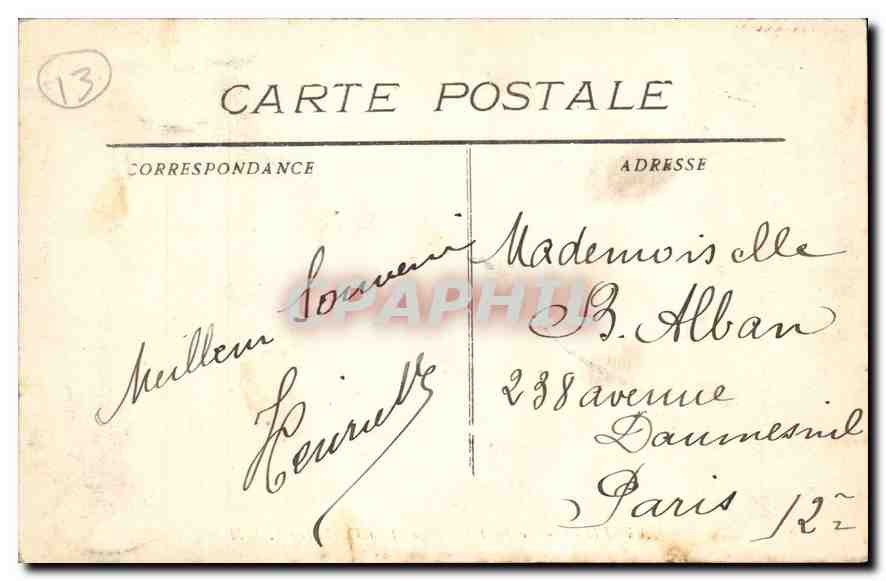 13
CARTE POSTALE
CORRESPONDANCE
ADRESSE
Meilleur Souvenir
Henriette
Mademoiselle
B. Alban
238 avenue
Daumesnil
Paris 12e
CPAPHIL